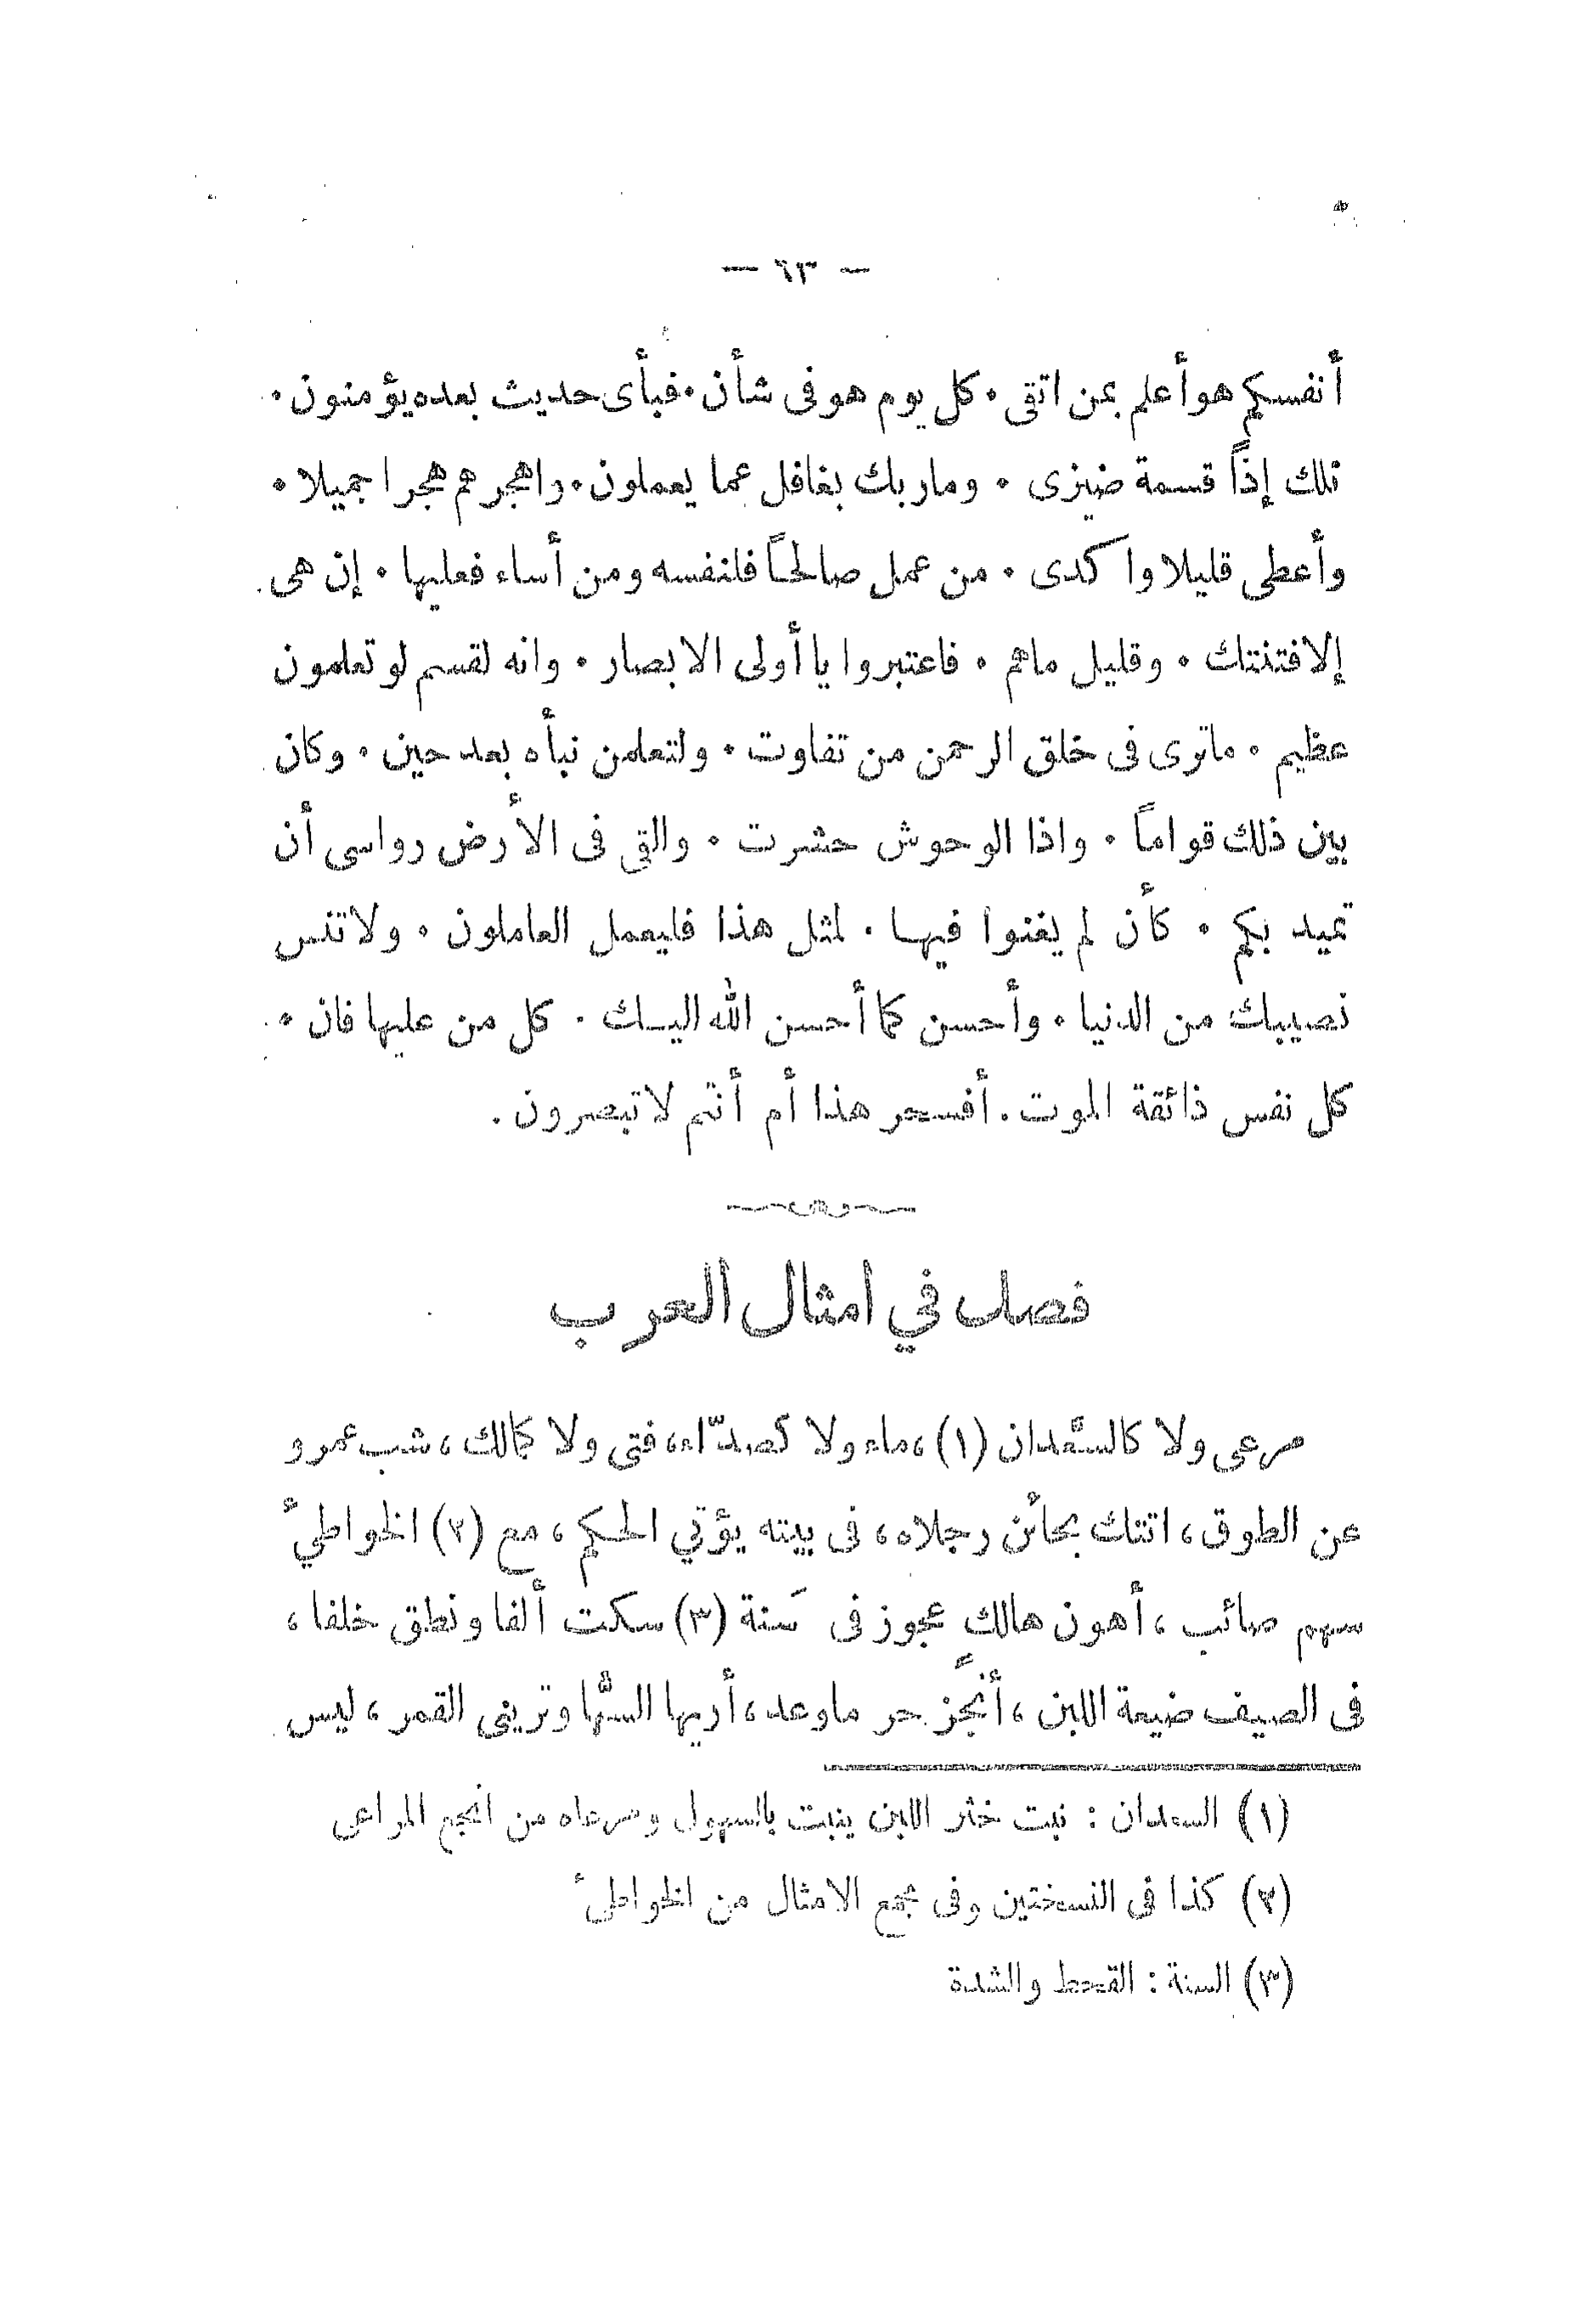 — ٦٣ —
أنفسكم هو أعلم بمن اتقى . كل يوم هو فى شأن . فبأى حديث بعده يؤمنون .
تلك إذاً قسمة ضيزى . وما ربك بغافل عما يعملون . واهجرهم هجرا جميلا .
وأعطى قليلا واكدى . من عمل صالحاً فلنفسه ومن أساء فعليها . إن هى
إلا فتنتك . وقليل ماهم . فاعتبروا يا أولى الابصار . وانه لقسم لو تعلمون
عظيم . ماترى فى خلق الرحمن من تفاوت . ولتعلمن نبأه بعد حين . وكان
بين ذلك قواماً . واذا الوحوش حشرت . والقى فى الأرض رواسى أن
تميد بكم . كأن لم يغنوا فيها . لمثل هذا فليعمل العاملون . ولا تنس
نصيبك من الدنيا . وأحسن كما أحسن الله اليك . كل من عليها فان .
كل نفس ذائقة الموت . أفسحر هذا أم أنتم لا تبصرون .
فصل في امثال العرب
مرعى ولا كالسَّعدان (١) ، ماء ولا كصدّاء ، فتى ولا كمالك ، شب عمرو
عن الطوق ، اتتك بحائن رجلاه ، فى بيته يؤتي الحكم ، مع (٢) الخواطيُ
سهم صائب ، أهون هالكٍ عجوز فى سَنة (٣) سكت ألفا ونطق خلفا ،
فى الصيف ضيعة اللبن ، أنجَز حر ماوعد ، أريها السُّها وترينى القمر ، ليس
(١) السعدان : نبت خثر اللبن ينبت بالسهول ومرعاه من انجع المراعى
(٢) كذا فى النسختين وفى مجمع الامثال من الخواطئ
(٣) السنة : القحط والشدة